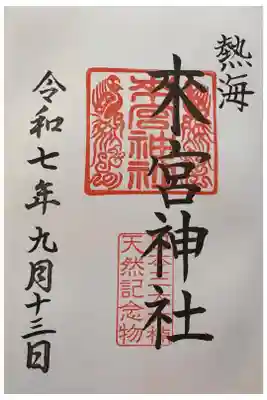 熱海
來宮神社
來宮神社
天然記念物
令和七年九月十三日